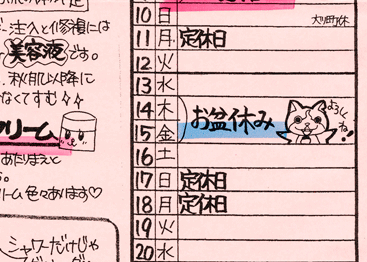 注入と修復には
美容液です。
秋肌以降に
なくてすむ
クリーム
あたりまえと
リーム色々あります♡
シャワーだけじゃ
10 日
11 月 定休日
12 火
13 水
14 木 お盆休み
15 金
よろしくね!
16 土
17 日 定休日
18 月 定休日
19 火
20 水